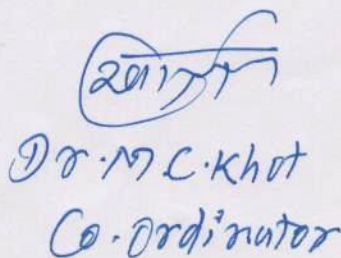 Dr. M. C. Khot
Co-ordinator